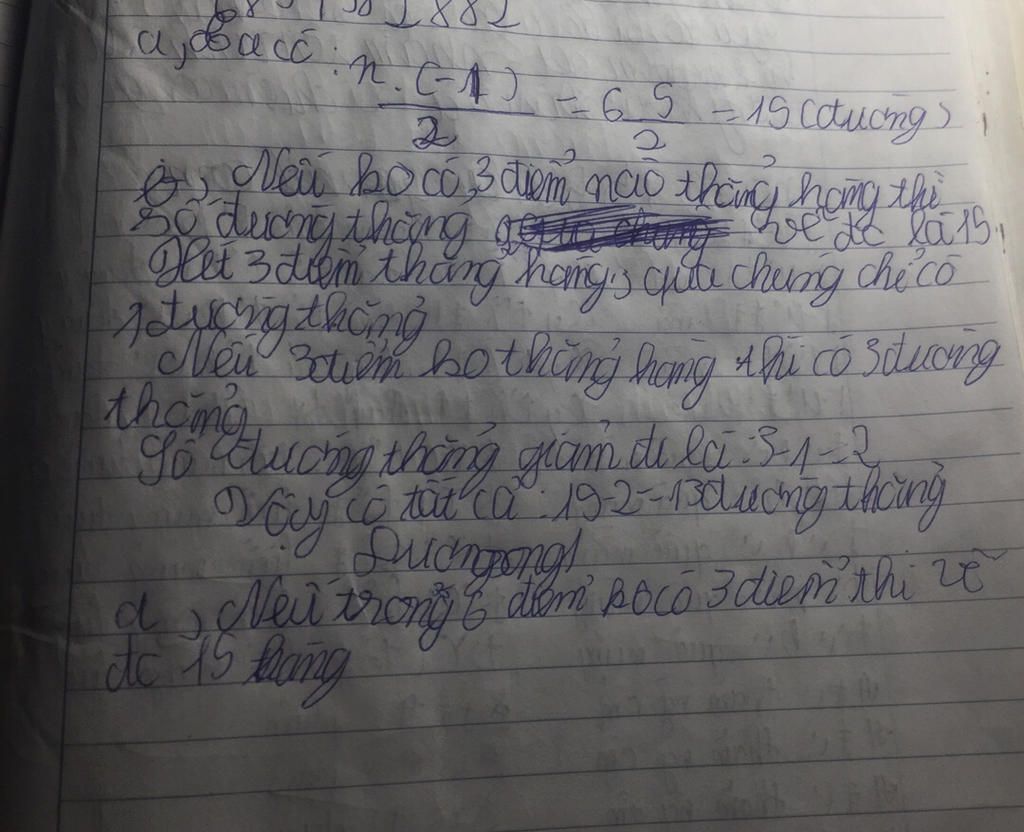 a, ta có: n.(-1)/2 = 6 5/2 = 15 (đường)
b, Nếu ko có 3 điểm nào thẳng hàng thì
số đường thẳng vẽ đc là 15.
Xét 3 điểm thẳng hàng, qua chúng chỉ có
1 đường thẳng
Nếu 3 điểm ko thẳng hàng thì có 3 đường
thẳng
Số đường thẳng giảm đi là: 3-1=2
Vậy có tất cả: 15-2=13 đường thẳng
d, Nếu trong 6 điểm ko có 3 điểm thì vẽ
đc 15 thẳng